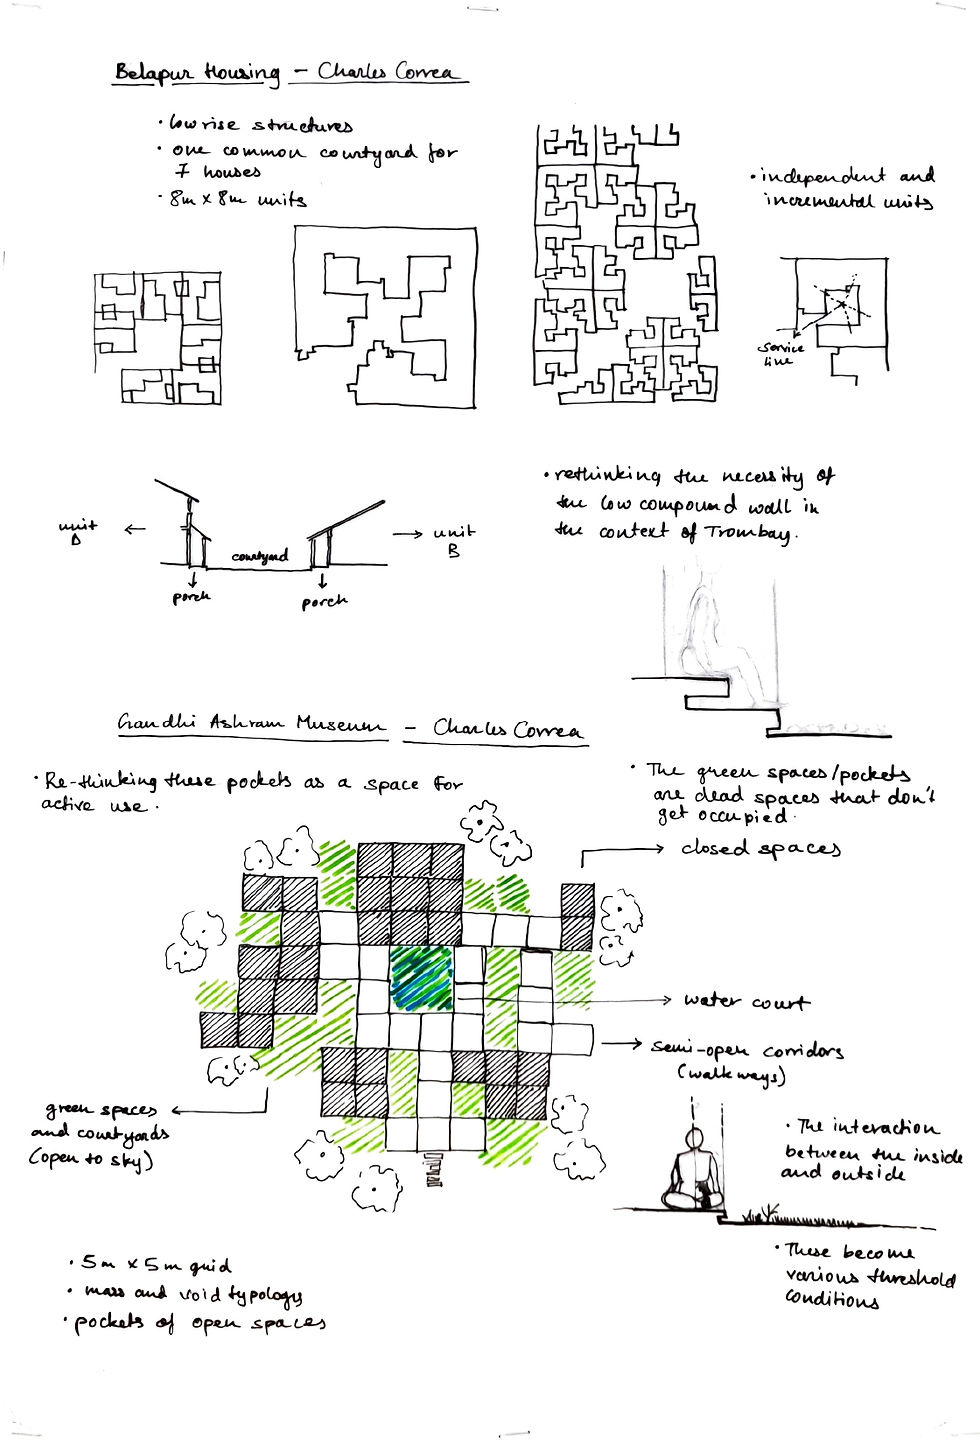 Belapur Housing - Charles Correa
• low rise structures
• one common courtyard for
7 houses
• 8m x 8m units
• independent and
incremental units
service
line
• rethinking the necessity of
the low compound wall in
the context of Trombay.
unit
A
courtyard
unit
B
porch
porch
Gandhi Ashram Museum - Charles Correa
• Re-thinking these pockets as a space for
active use.
• The green spaces/pockets
are dead spaces that don't
get occupied.
closed spaces
water court
semi-open corridors
(walkways)
green spaces
and courtyards
(open to sky)
• The interaction
between the inside
and outside
• These become
various threshold
conditions
• 5m x 5m grid
• mass and void typology
• pockets of open spaces